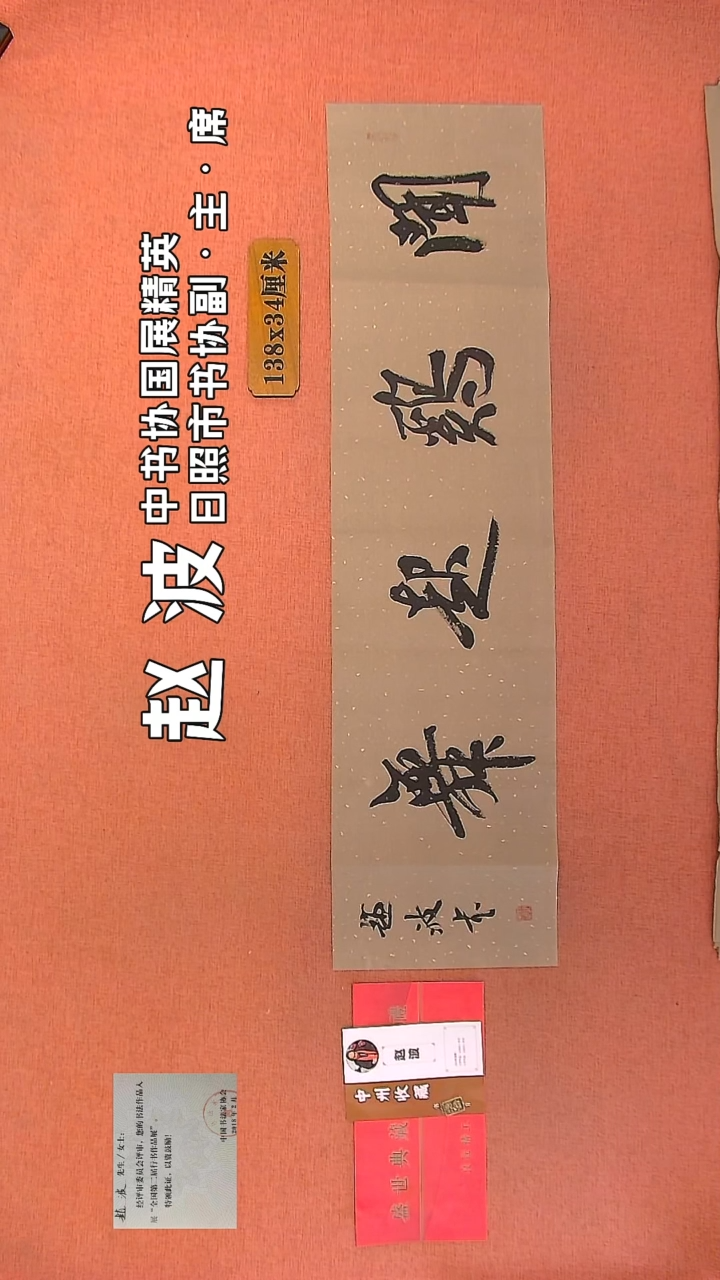 中书协国展精英
赵波 日照市书协副·主·席
138x34厘米
聞鷄起舞
趙波书
赵波
中州收藏
盛世典藏
赵波 先生／女士：
经评审委员会评审，您的书法作品入
展“全国第二届行书作品展”。
特颁此证，以资鼓励！
中国书法家协会